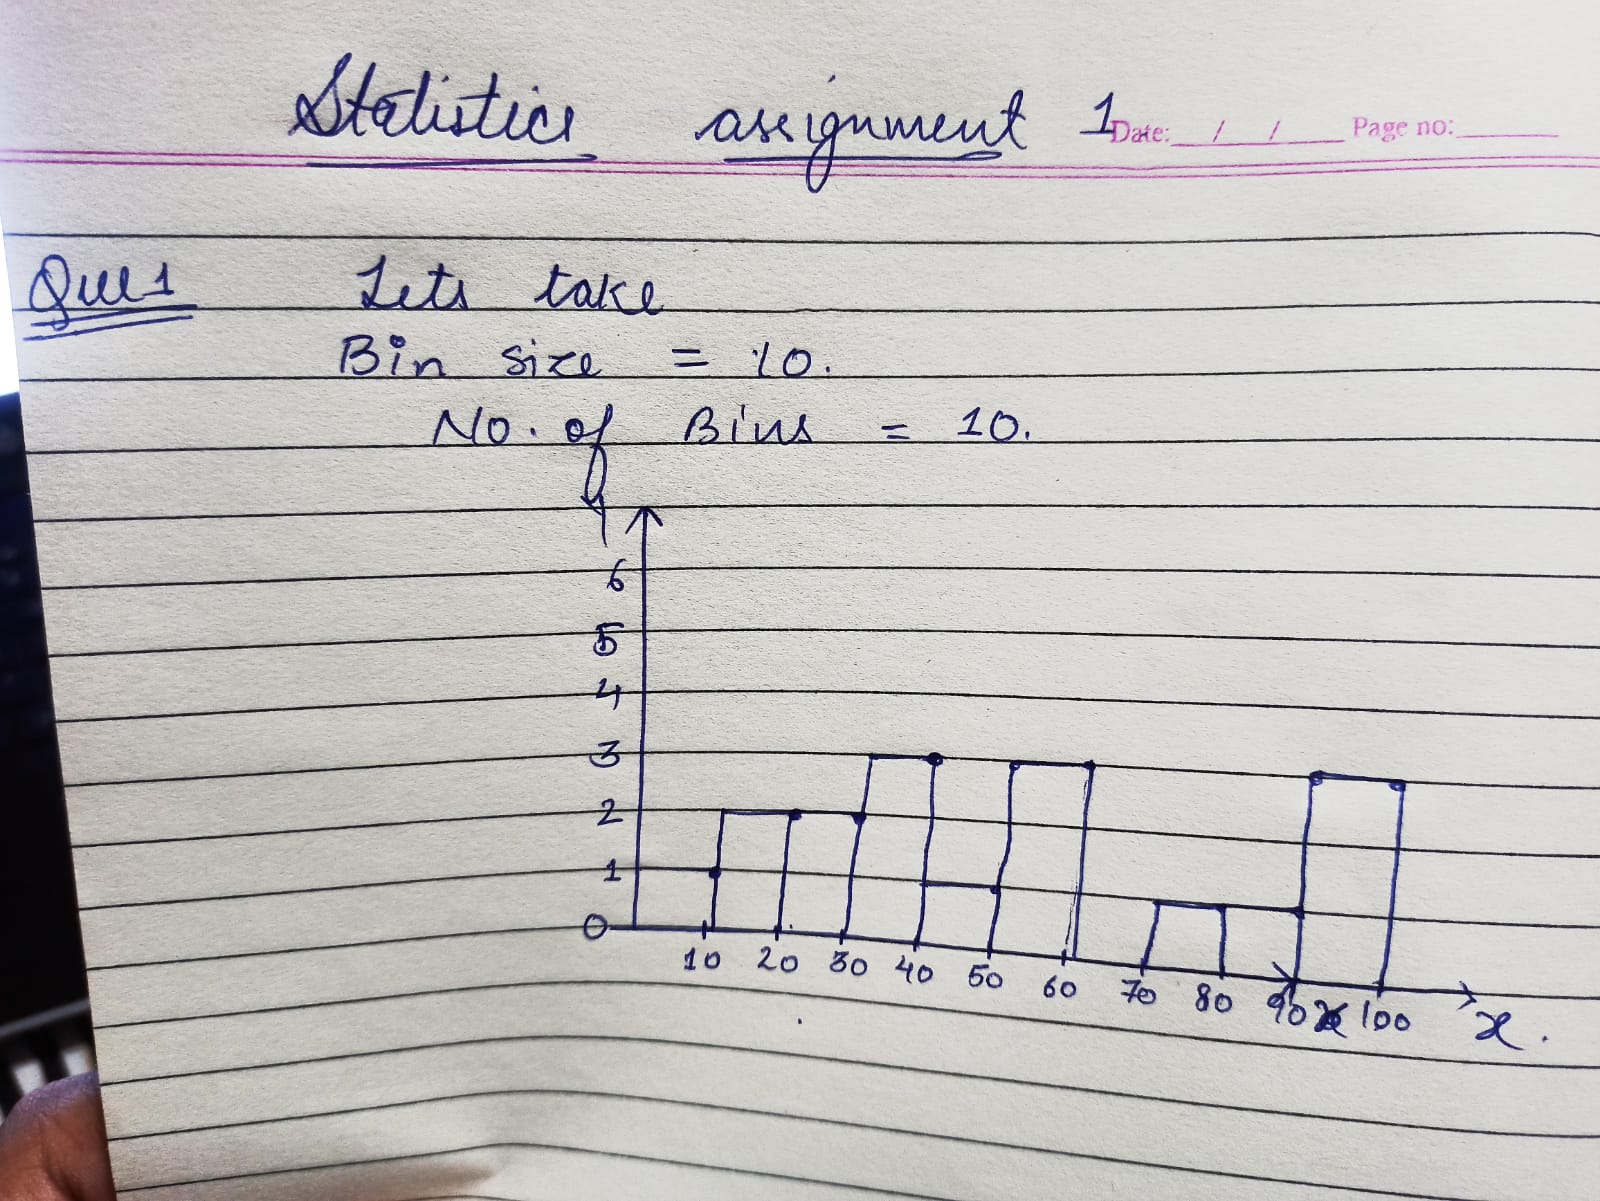 Statistics assignment 1
Date: __/__/____ Page no:______
Ques 1 Lets take
Bin size = 10.
No. of Bins = 10.
f
6
5
4
3
2
1
0
10 20 30 40 50 60 70 80 90 100 x.